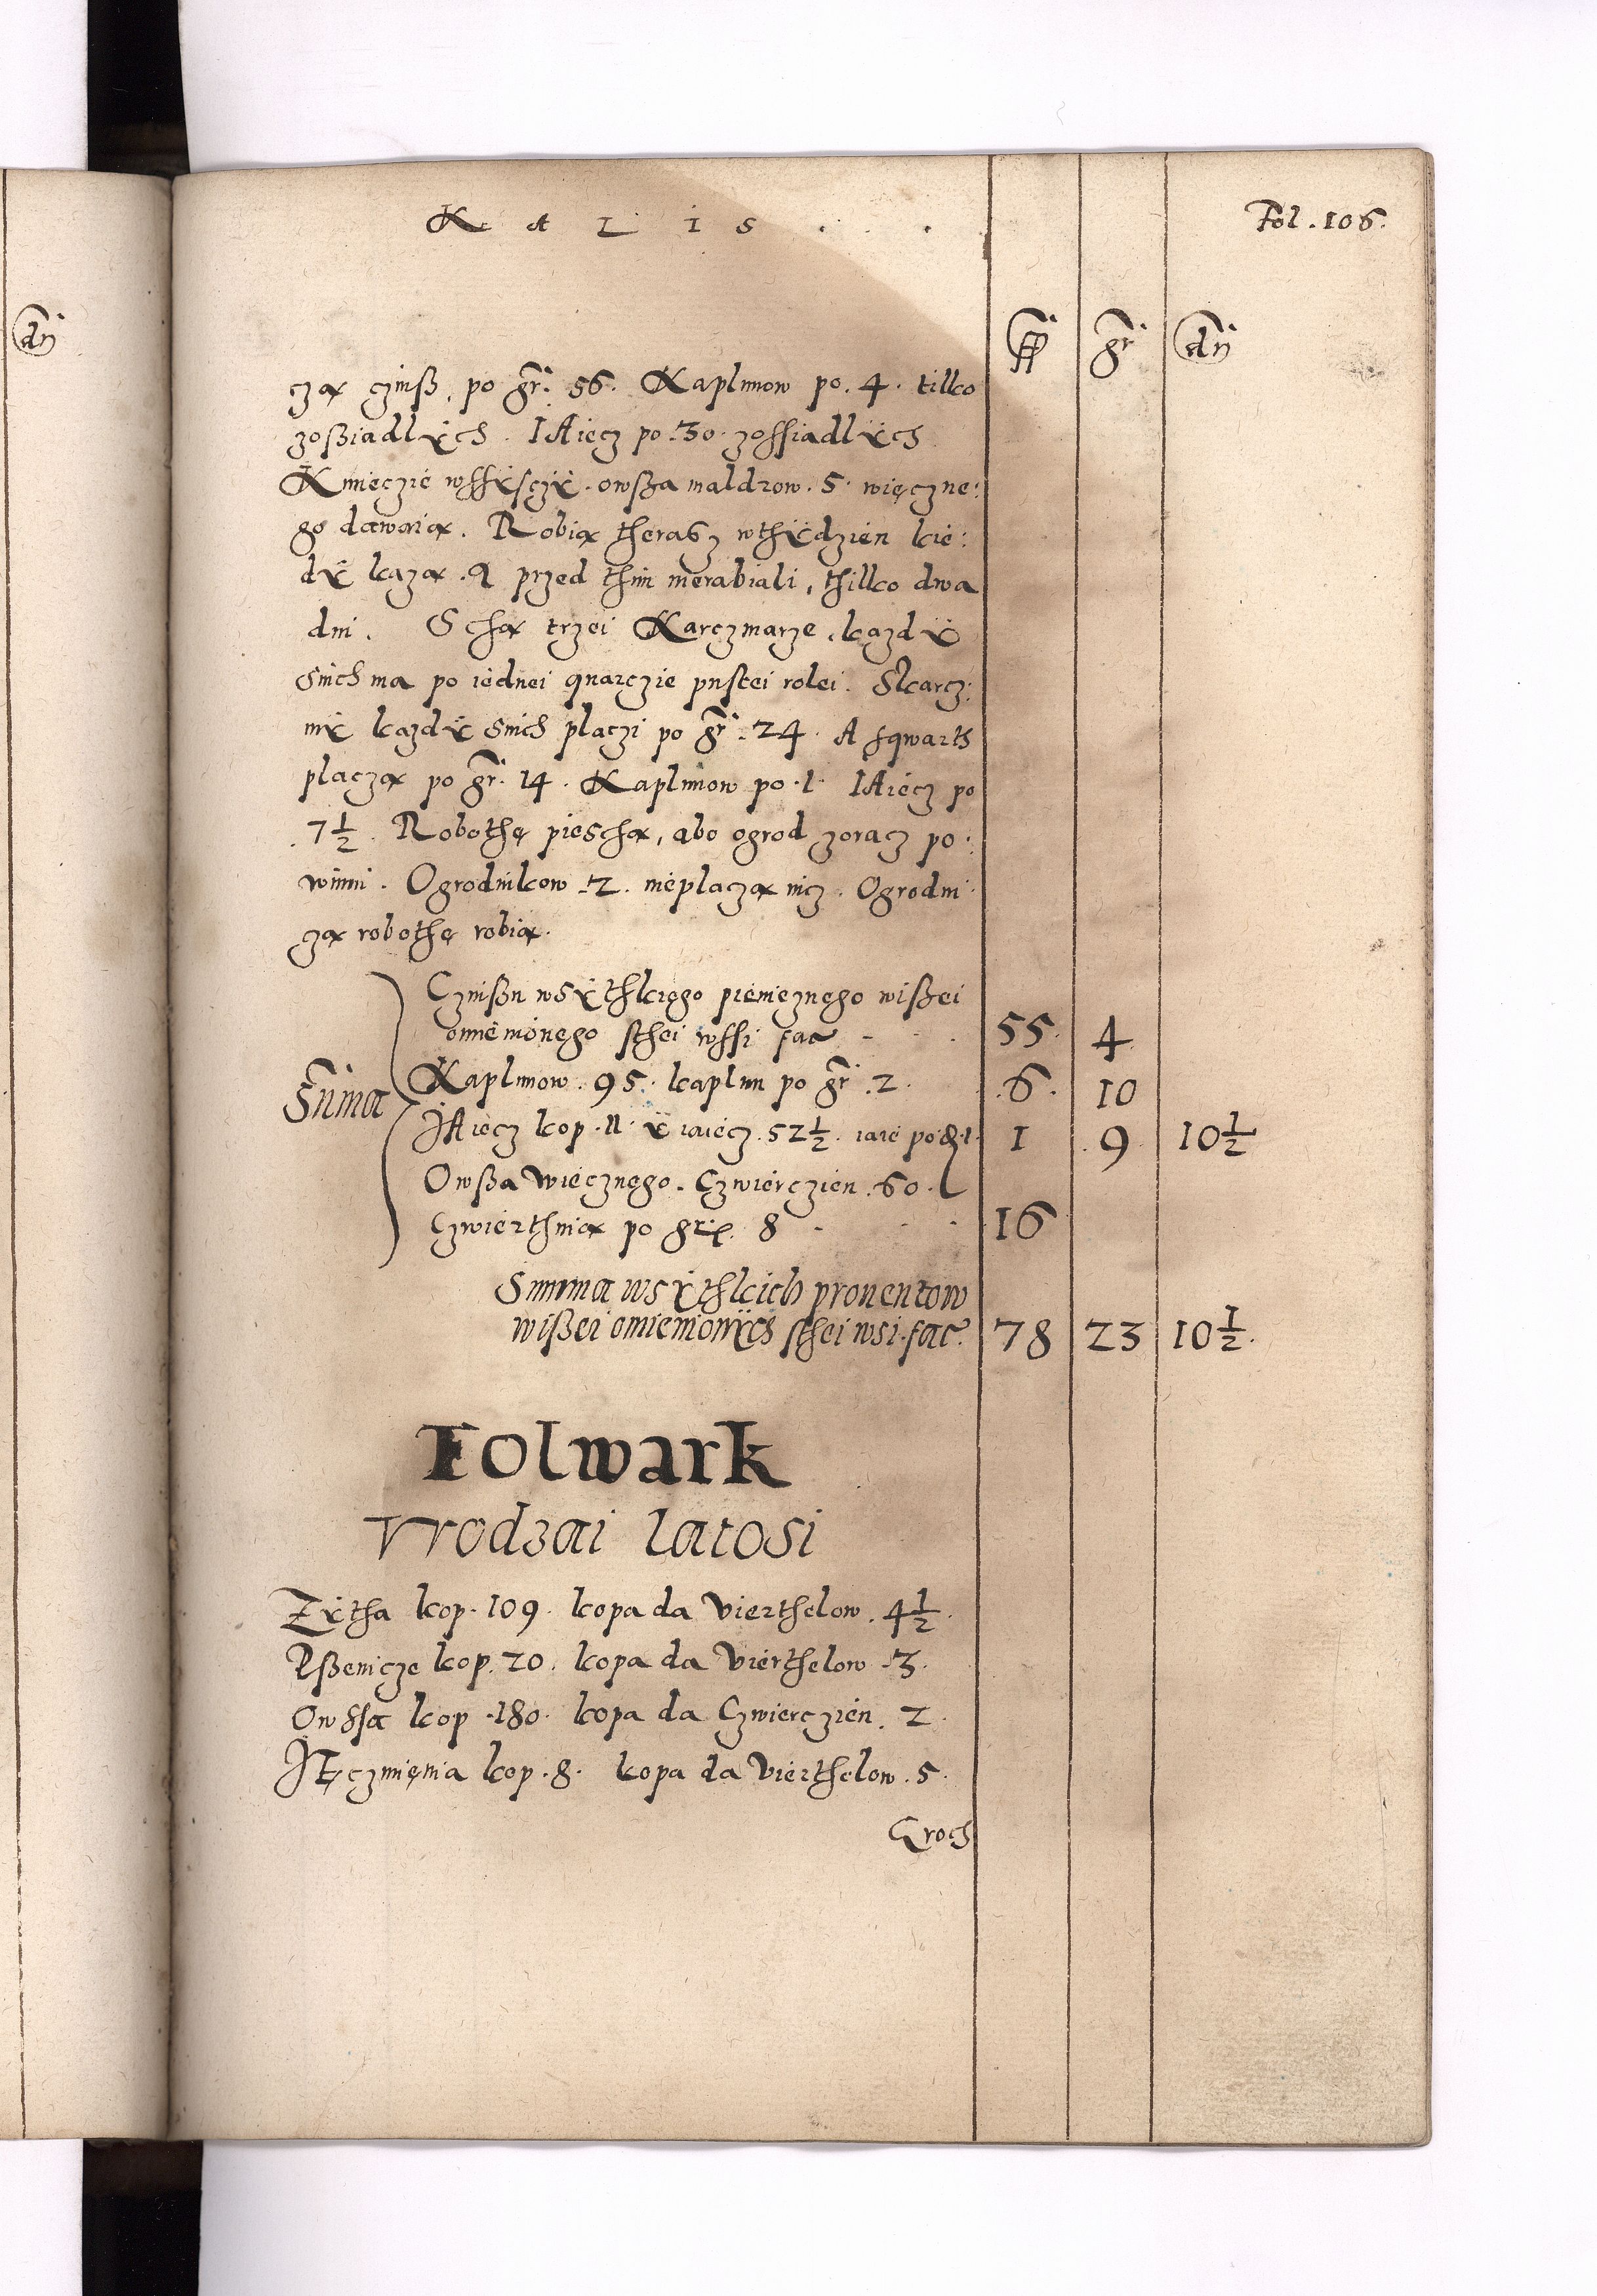 K A L I S . .
Fol. 106.
fl gr dn
dn
czą czinß, po gr. 56. Kaplunow po. 4. tilko
zoßiadlÿch. IAiecz po. 30. zossiadlÿch
Kmieczie wssÿsczÿ. owßa maldrow. 5. więczne:
go dawaią. Robią therasz wthÿdzien kie:
dÿ każą. A przed thim nierabiali, thilko dwa
dni. Schą trzei Karczmarze, każdÿ
snich ma po iednei quarczie pustei rolei. Skarcz:
mÿ każdÿ snich placzi po gr. 24. A sqwarth
placzą po gr. 14. Kaplunow po. 1. IAiecz po
. 7 1/2. Robothę pieschą, abo ogrod zoracz po:
winni. Ogrodnikow. 2. nieplaczą nicz. Ogrodni
czą robothę robią.
Czinßu wsÿthkięgo pieniężnęgo wißei
omiemonęgo sthei wssi fac - . 55. 4.
Suma Kaplunow. 95. kaplun po gr. 2. .6. 10
IAiecz kop. 11. ÿ iaiecz. 52 1/2. iaie po d. 1. 1 .9. 10 1/2
Owßa Wiecznęgo. Czwierczien. 60.
Czwierthnią po gr. 8 - . . 16
Summa wsÿthkich prouentow
wißei omiemonÿch sthei wsi. fac. 78 23 10 1/2.
Folwark
Vrodzai latosi
Zÿtha kop. 109. kopa da Vierthelow. 4 1/2.
Pßenicze kop. 20. kopa da Vierthelow. 3.
Owssa kop. 180. kopa da Czwierczien. 2.
IĘczmięnia kop. 8. kopa da Vierthelow. 5.
Groch